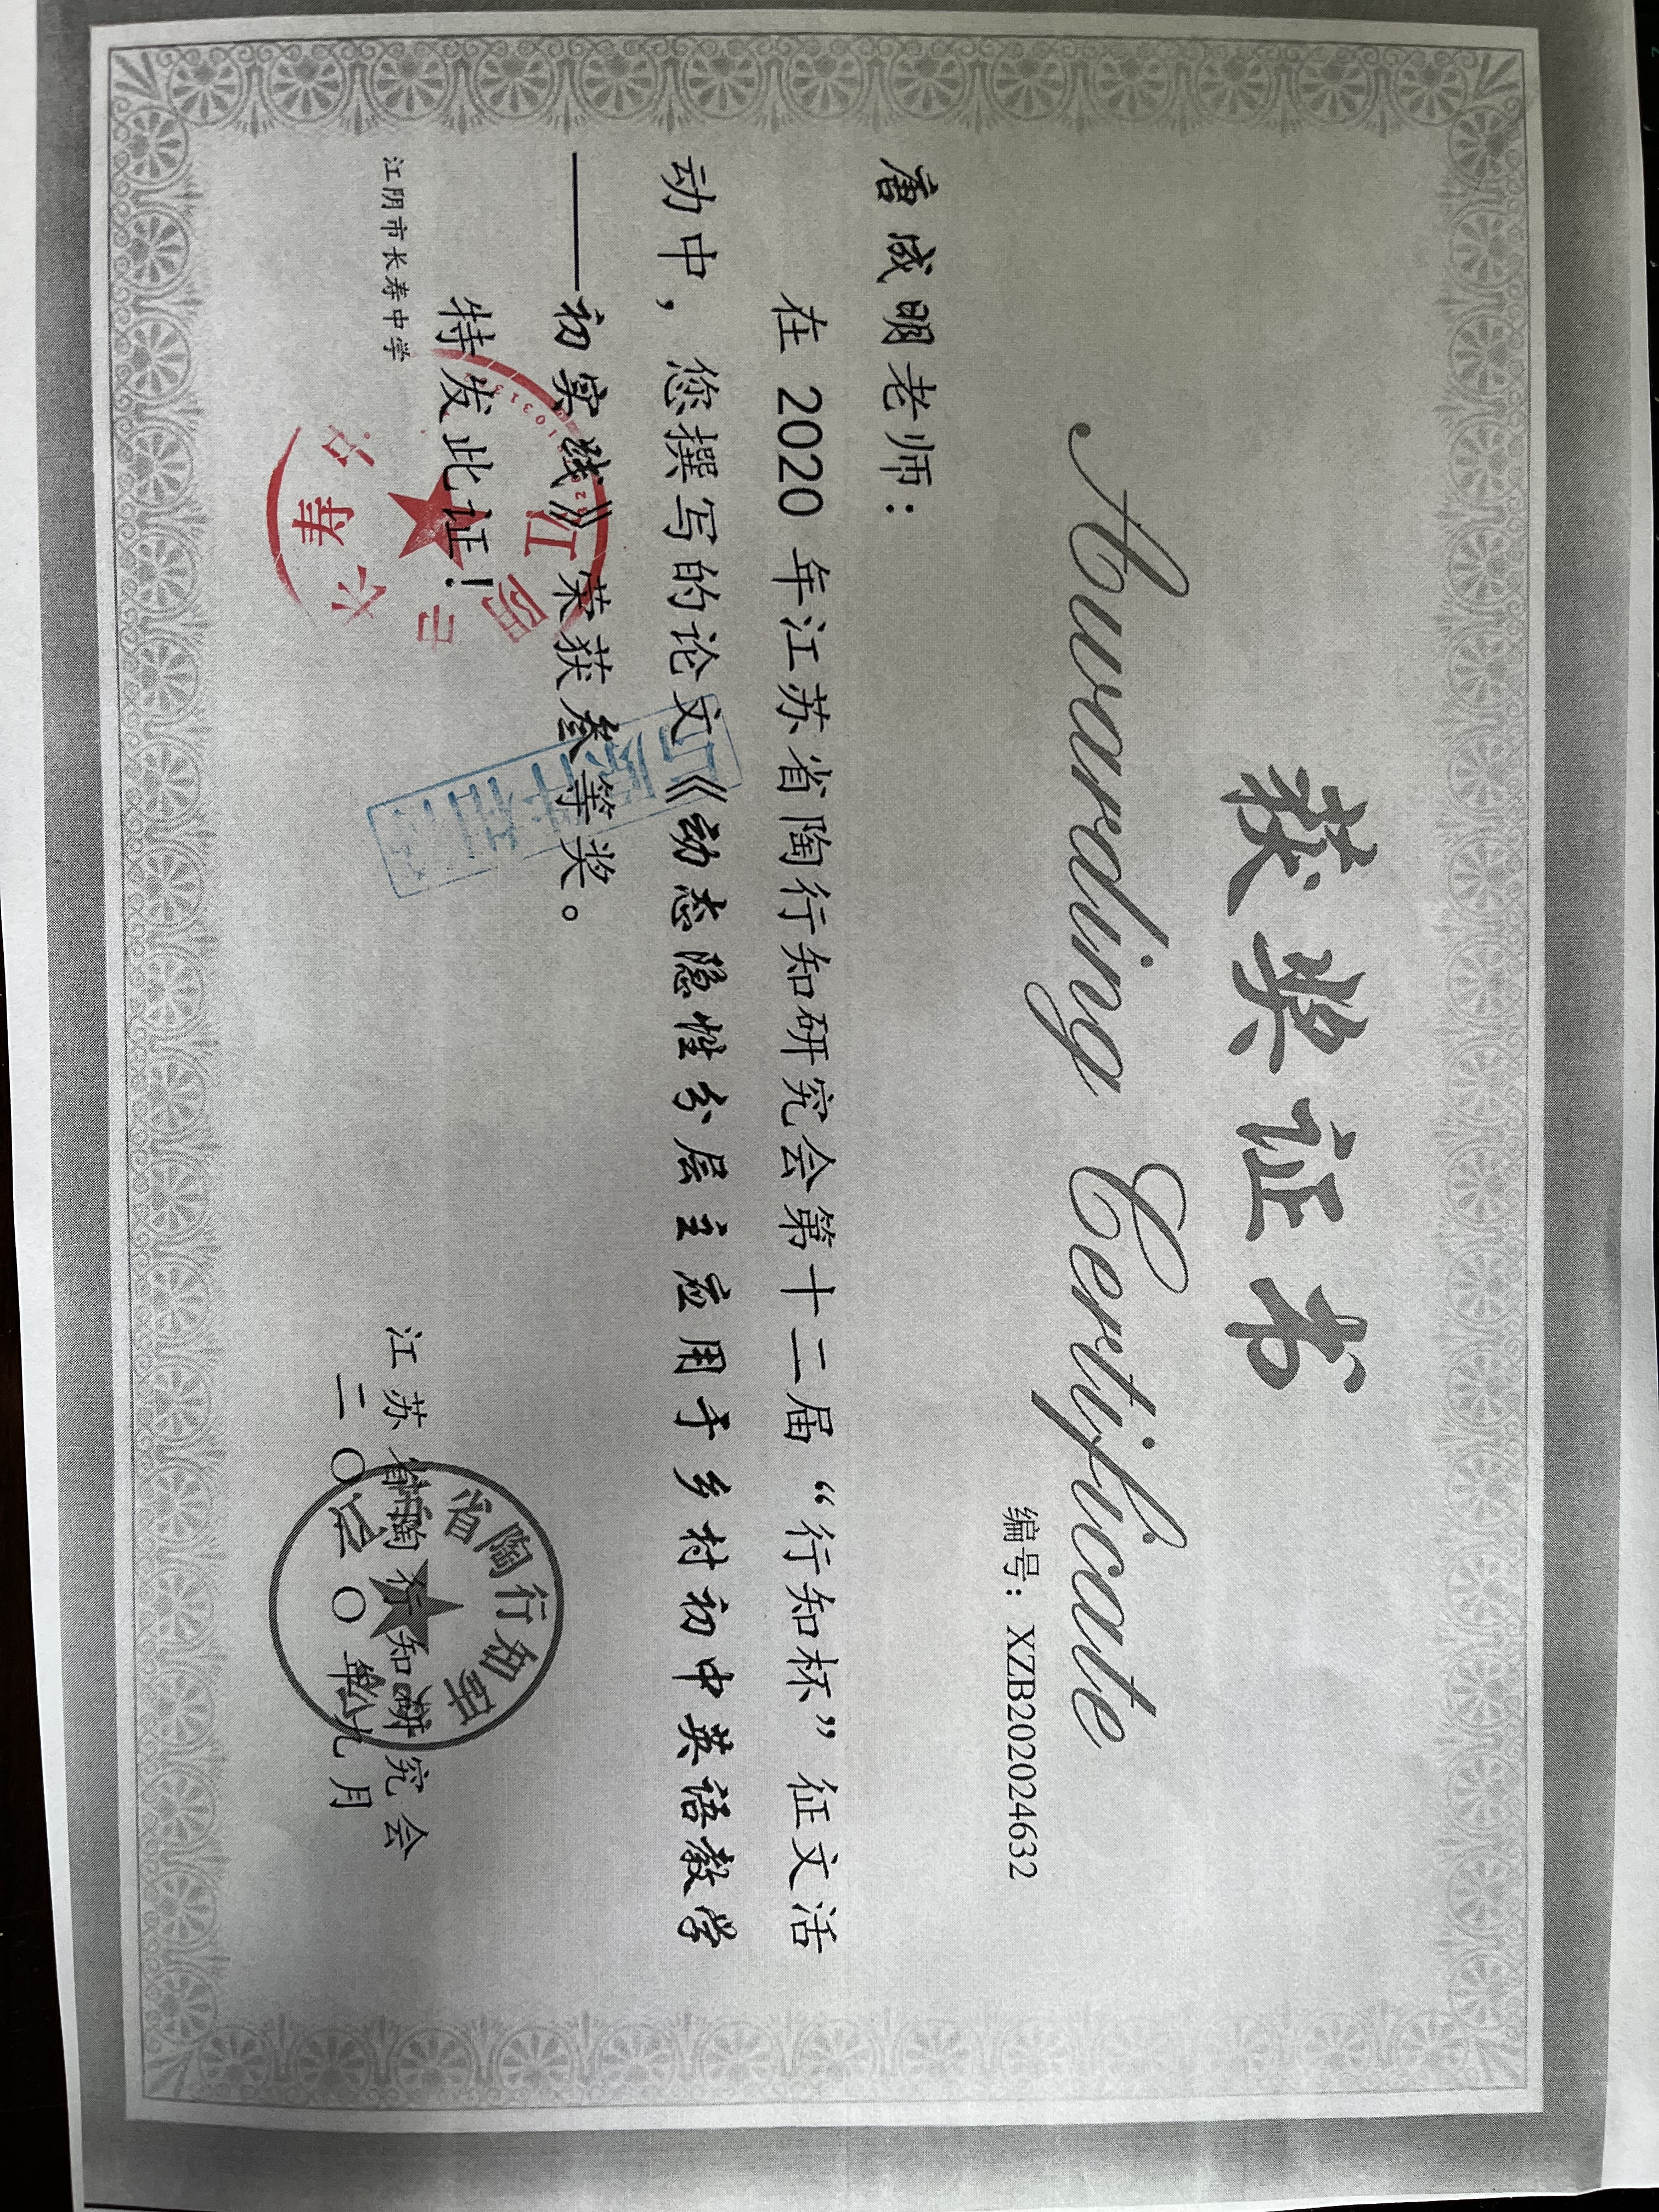 获奖证书
Awarding Certificate
编号：XZB202024632
唐成明老师：
在 2020 年江苏省陶行知研究会第十二届“行知杯”征文活
动中，您撰写的论文《动态隐性分层主应用于乡村初中英语教学
——初实践》荣获叁等奖。
特发此证！
江阴市长寿中学
江苏省陶行知研究会
二〇二〇年九月